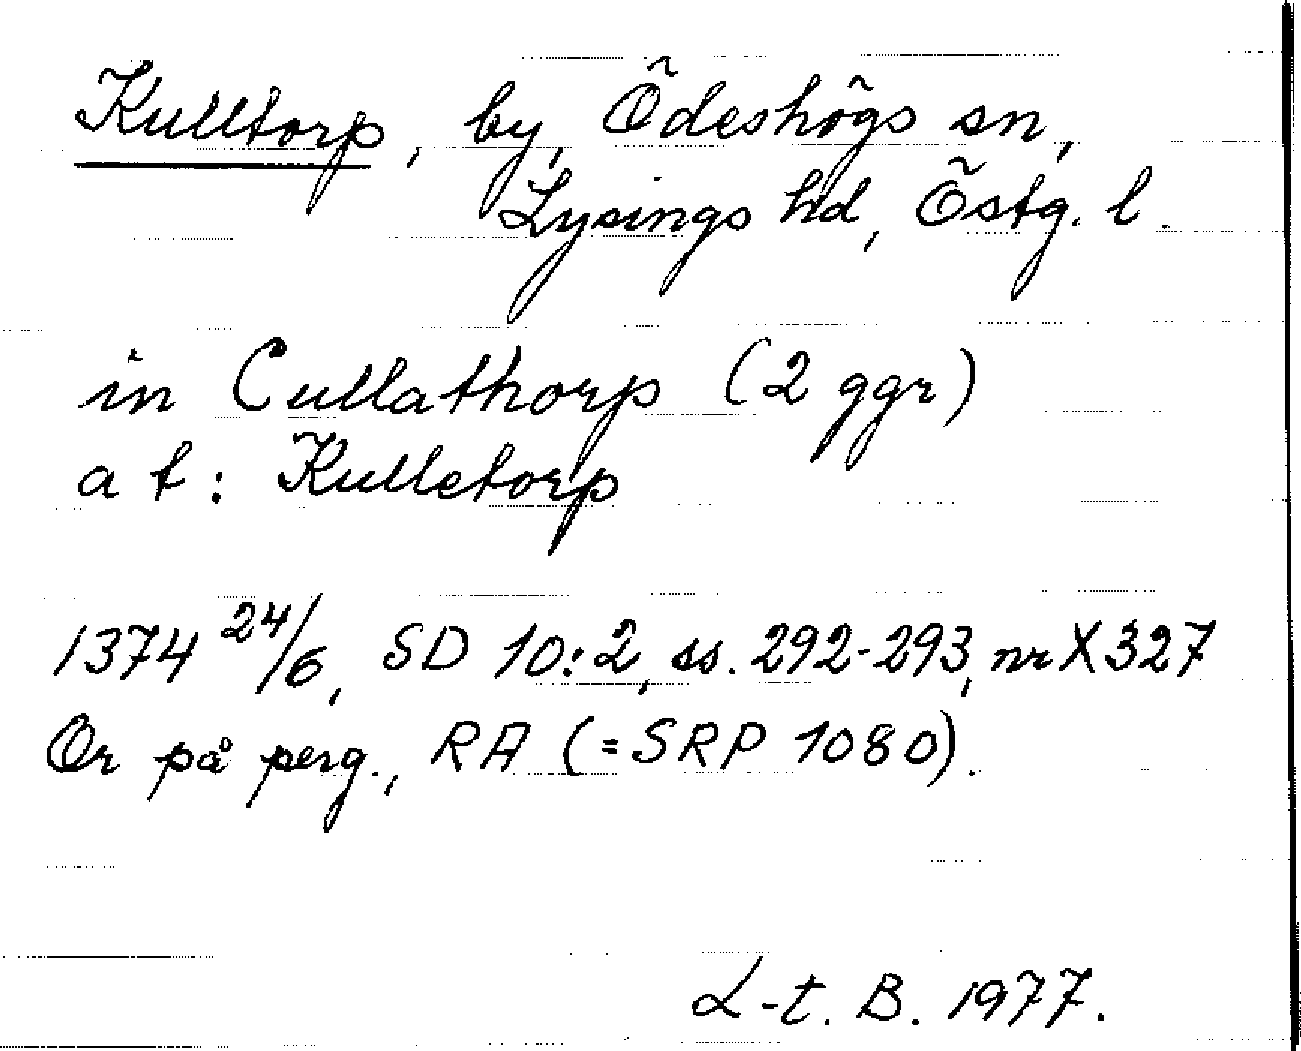 Kulltorp, by, Ödeshögs sn,
Lysings hd, Östg. l.
in Cullathorp (2 ggr)
a t: Kulletorp
1374 24/6, SD 10:2, ss. 292-293, nr X 327
Or på perg., RA (=SRP 1080).
L-t. B. 1977.